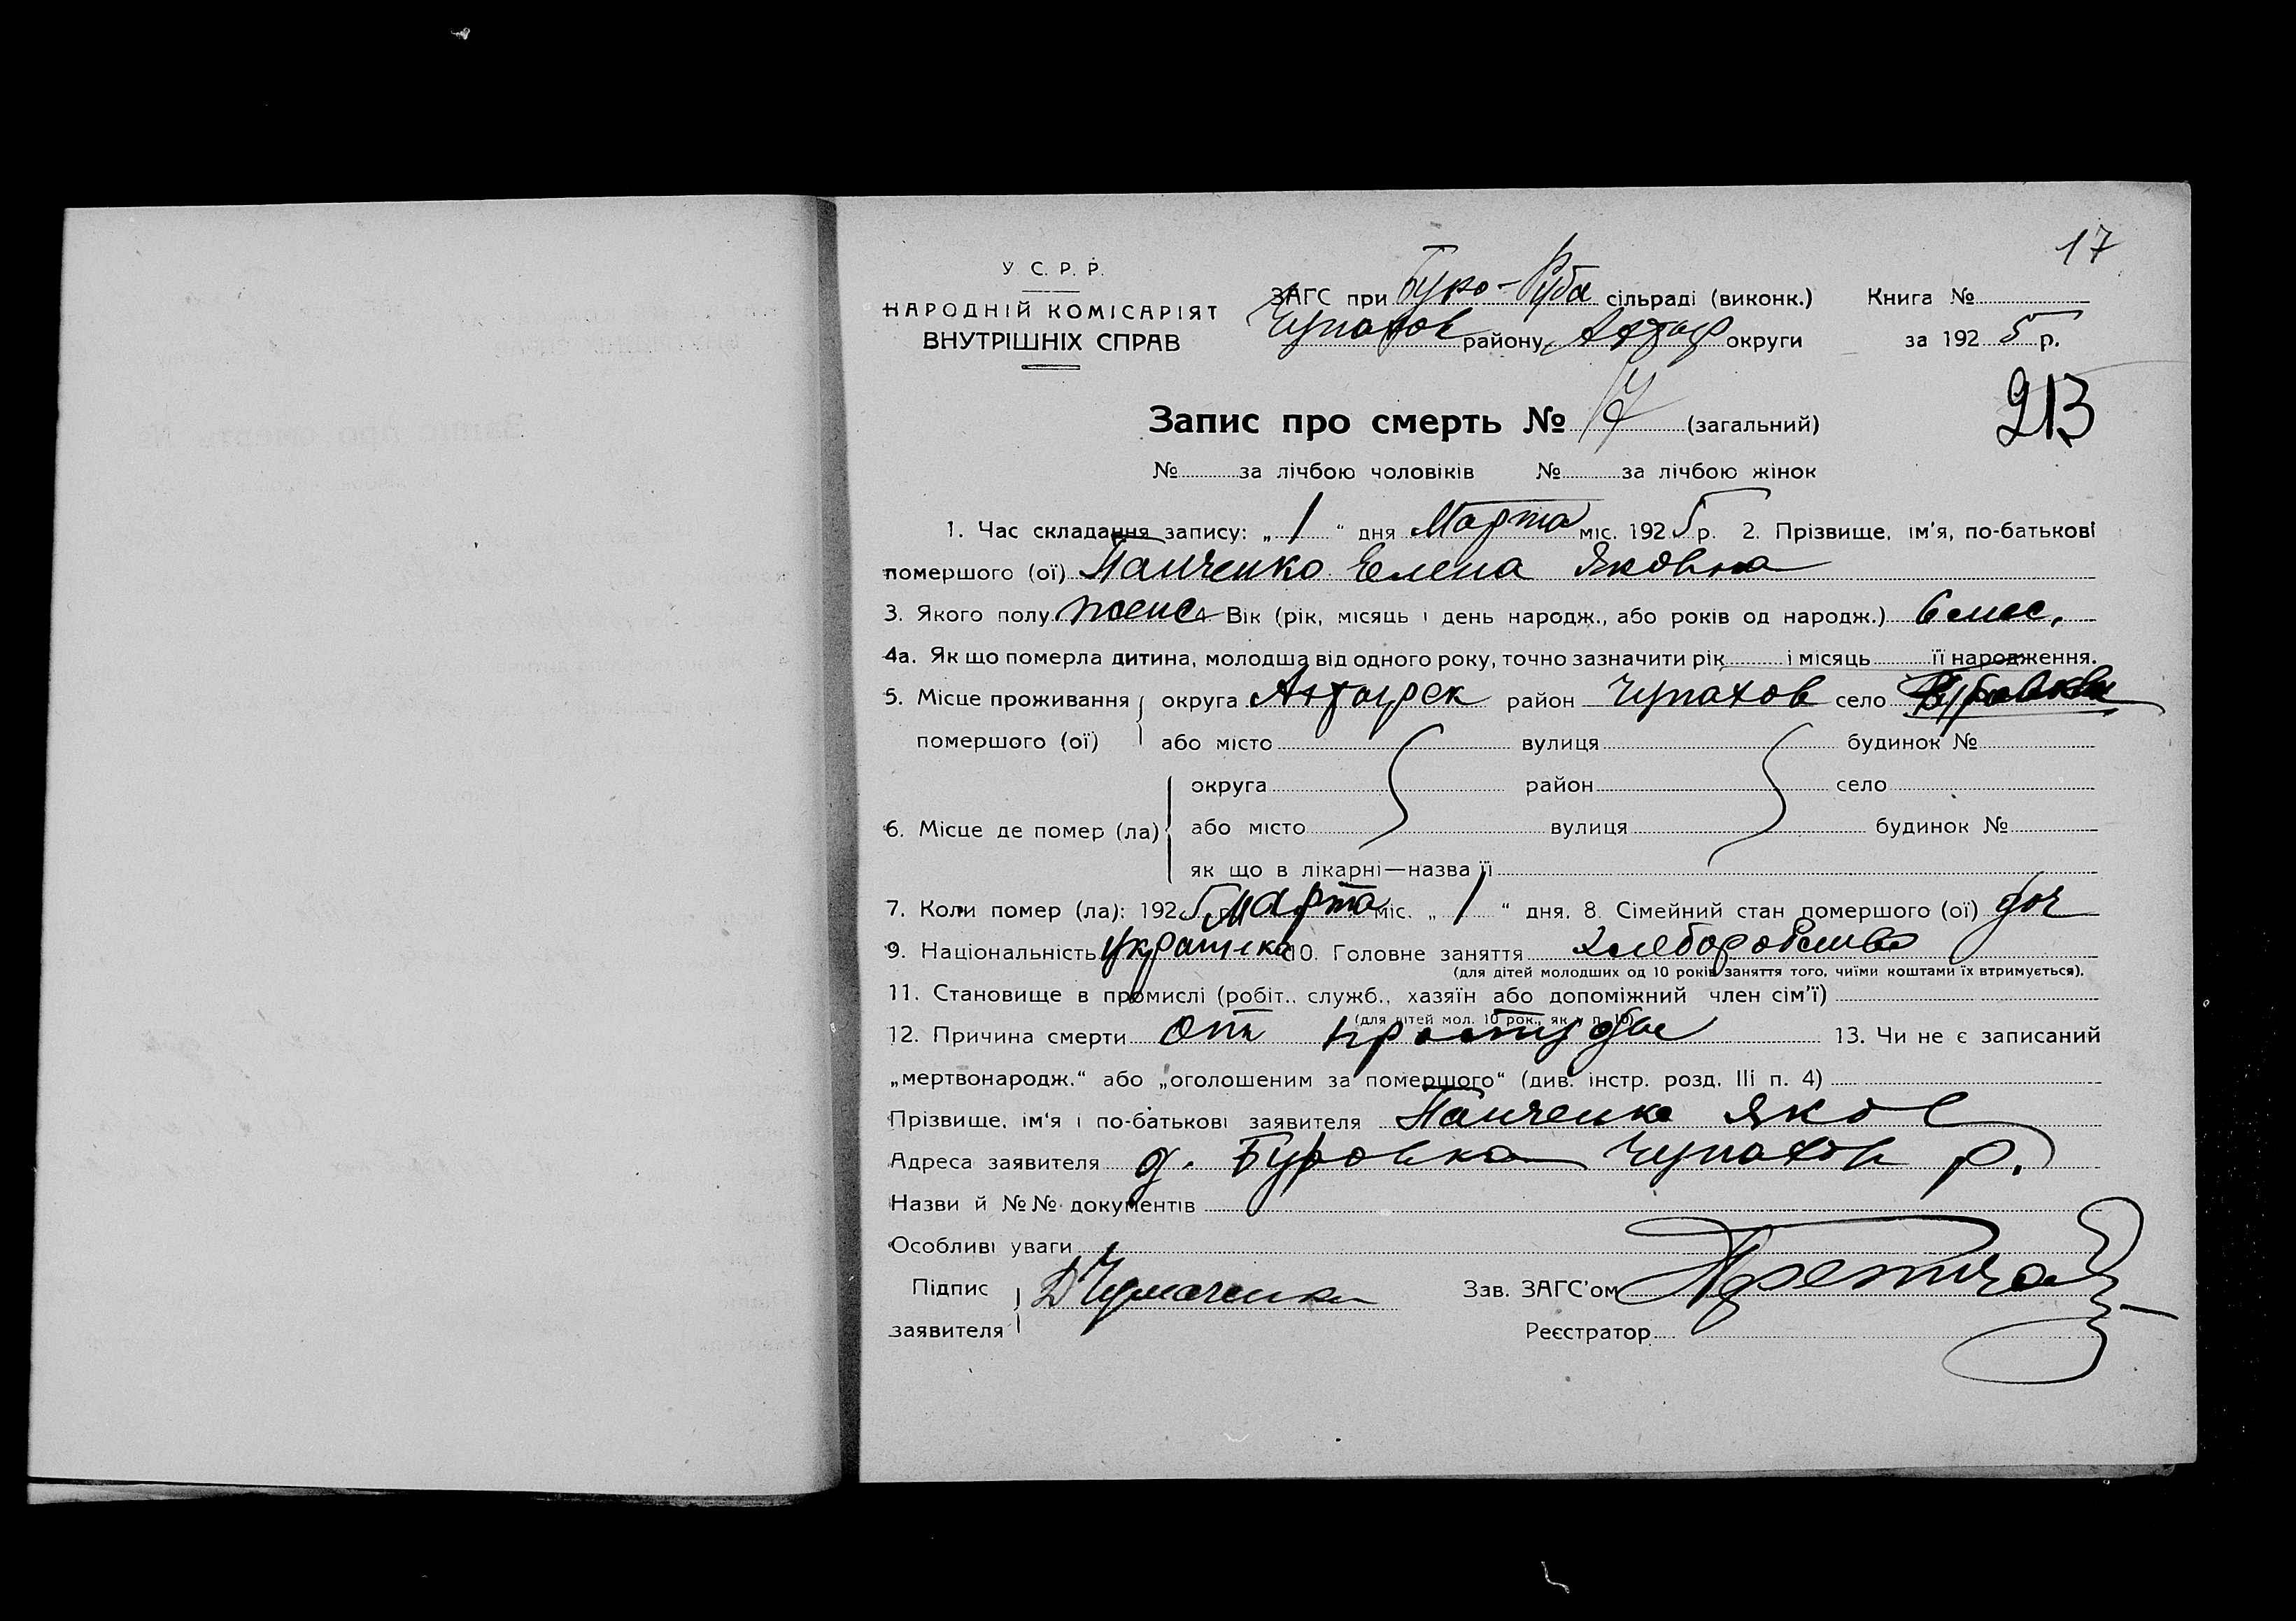 17
У. С. Р. Р.
НАРОДНІЙ КОМІСАРІЯТ
ВНУТРІШНІХ СПРАВ
ЗАГС при Буро-Руба сільраді (виконк.) Книга №
Чупахов району Ахтыр округи за 1925 р.
Запис про смерть № 17 (загальний)
213
№ за лічбою чоловіків № за лічбою жінок
1. Час складання запису: „ 1 “ дня Марта міс. 1925 р. 2. Прізвище, ім'я, по-батькові
помершого (ої) Панченко Елена Яковна
3. Якого полу женс 4 Вік (рік, місяць і день народж., або років од народж.) 6 мес.
4а. Як що померла дитина, молодша від одного року, точно зазначити рік і місяць її народження.
5. Місце проживання округа Ахтырск район Чупахов село
помершого (ої) або місто вулиця будинок №
округа район село
6. Місце де помер (ла) або місто вулиця будинок №
як що в лікарні—назва її
7. Коли помер (ла): 1925 р. Марта міс. „ 1 “ дня. 8. Сімейний стан помершого (ої) доч
9. Національність украинка 10. Головне заняття хлеборобство
(для дітей молодших од 10 років заняття того, чиїми коштами їх втримується).
11. Становище в промислі (робіт., служб., хазяїн або допоміжний член сім'ї)
(для дітей мол. 10 рок., як у п. 10)
12. Причина смерти от простуды 13. Чи не є записаний
„мертвонародж.“ або „оголошеним за помершого“ (див. інстр. розд. III п. 4)
Прізвище, ім'я і по-батькові заявителя Панченко Яков
Адреса заявителя д. Буровка Чупахов р.
Назви й №№ документів
Особливі уваги
Підпис Д Чумаченко Зав. ЗАГС'ом
заявителя Реєстратор